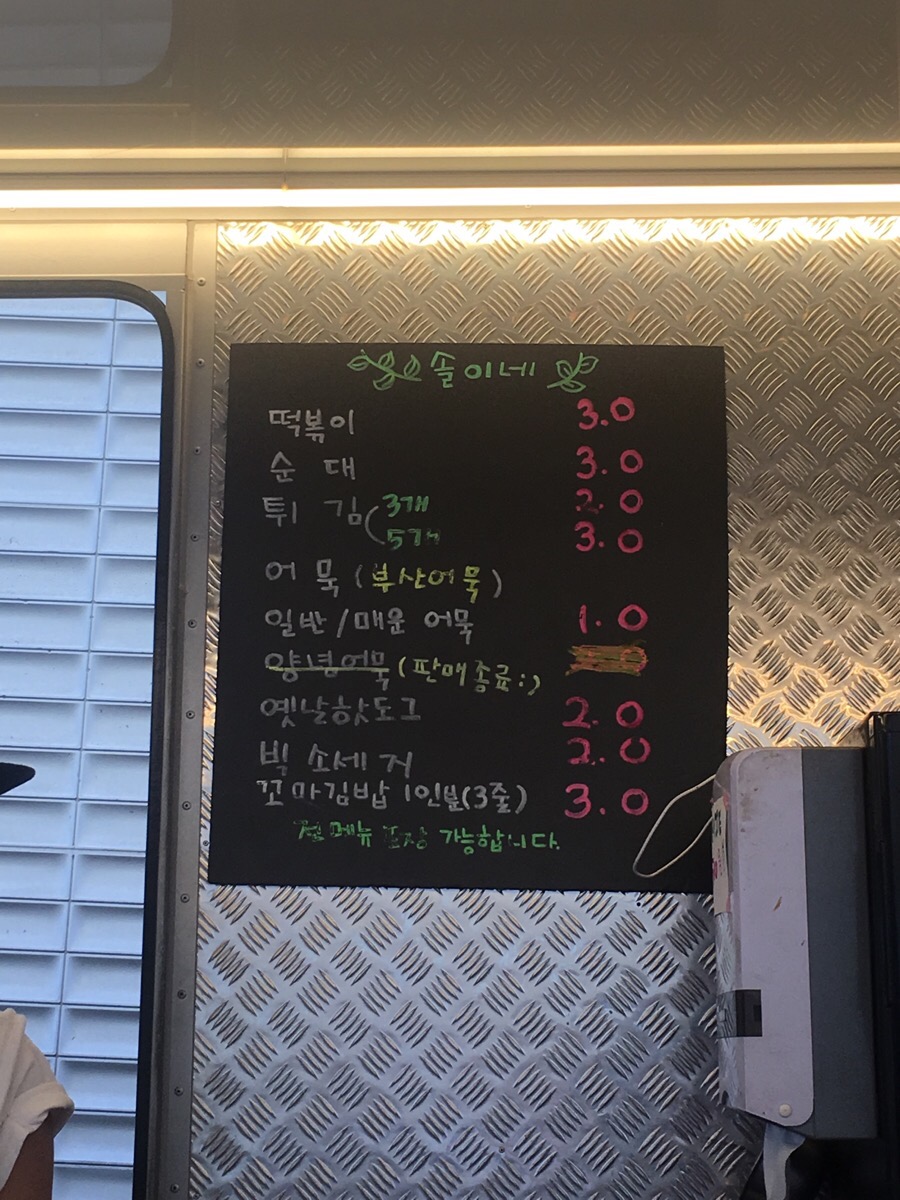 솔이네
떡볶이 3.0
순대 3.0
튀김 ( 3개 2.0
5개 3.0
어묵 (부산어묵)
일반/매운 어묵 1.0
양념어묵 (판매종료:)
옛날핫도그 2.0
빅 소세지 2.0
꼬마김밥 1인분(3줄) 3.0
전메뉴 포장 가능합니다.